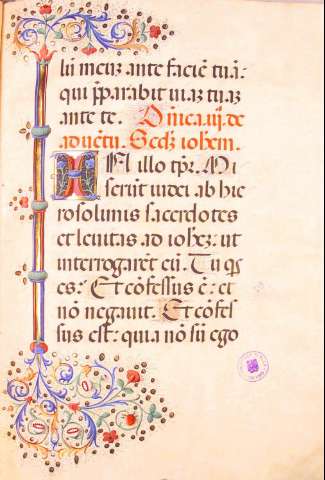 lū meuȝ ante faciē tuā:
qui p̄parabit uiaȝ tuaȝ
ante te. Dn̄ica.iiij.de
aduētu. Scd̄ȝ ioħem.
IN illo tp̄r. Mi
serūt iudei ab hie
rosolimis sacerdotes
et leuitas ad ioħeȝ: ut
interrogarēt eū. Tu q̄s
es: Et cōfessus ē: et
nō negauit. Et cōfes
sus est: quia nō sū ego